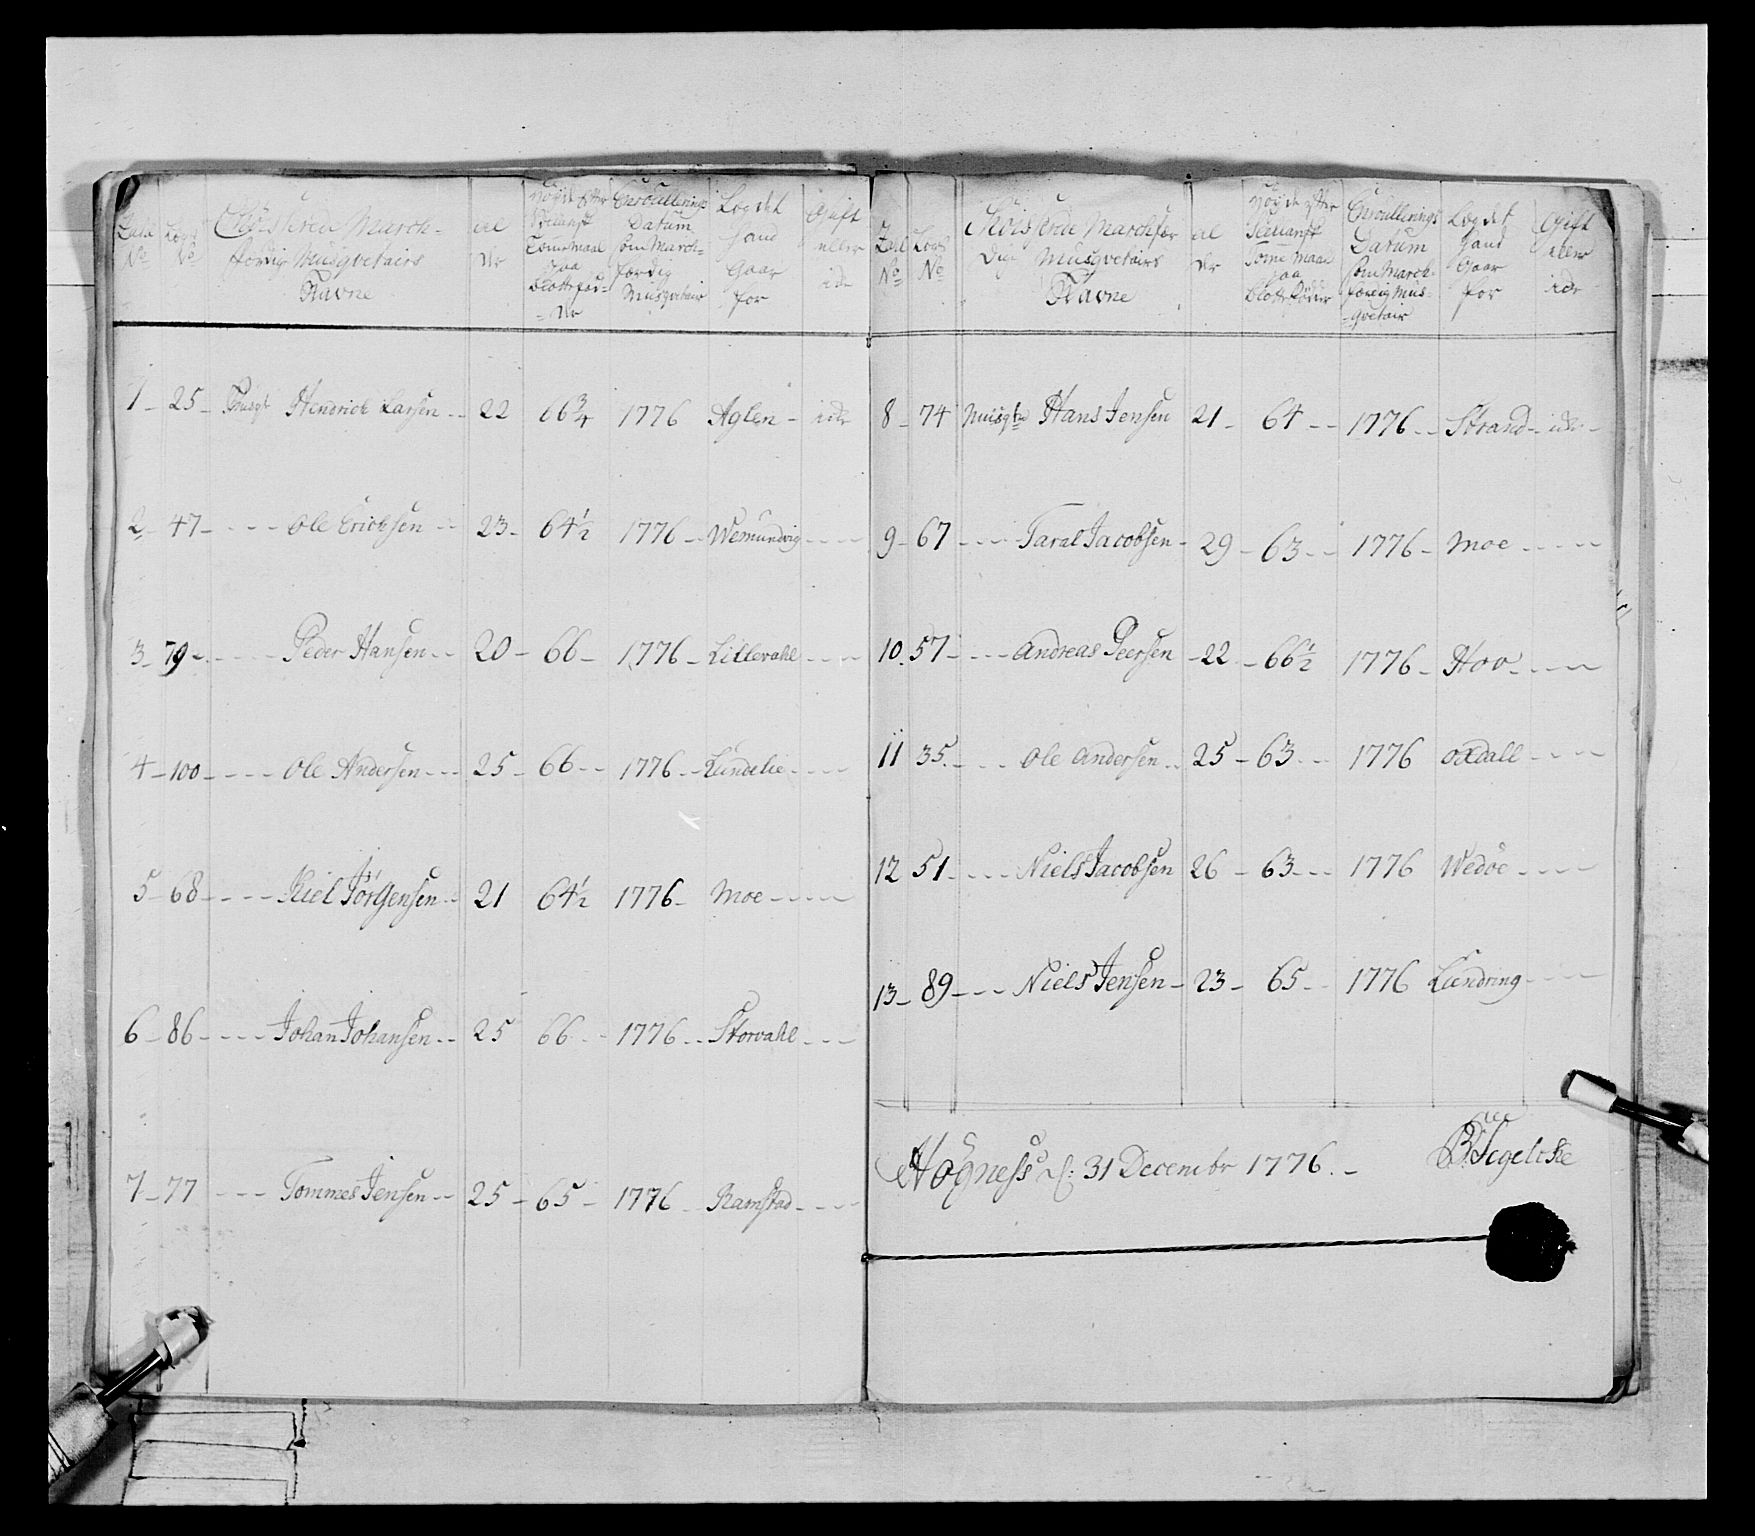 Zahl No
Logd No
March-
færdig Musqvetairs
Navne
al
der
Høyde Efter
Tomme Maal
paa
blotte fød-
-der
Enroullerings
Datum
som March-
færdig
Musqvetair
Legdet
hand
Gaar
for
Gift
eller
icke
1 25 Musqt Hendrich Larsen 22 66 3/4 1776 Aglen icke
2 47 Ole Erichsen 23 64 1/2 1776 Wemundvig
3 79 Peder Hansen 20 66 1776 Lillevahl
4 100 Ole Andersen 25 66 1776 Lundelie
5 68 Kiel Jörgensen 21 64 1/2 1776 Moe
6 86 Johan Johansen 25 66 1776 Storvahl
7 77 Tommes Jensen 25 65 1776 Ramstad
Zahl No
Logd No
Marchfær
dig Musqvetairs
Navne
al
der
Høyde efter
Tomme Maal
paa
blotte fødder
Enroullerings
Datum
som March-
færdig Mus-
qvetair
Legdet
hand
Gaar
for
Gift
eller
icke
8 74 Musqtr Hans Jensen 21 64 1776 Strand icke
9 67 Taral Jacobsen 29 63 1776 Moe
10 57 Andreas Peersen 22 66 1/2 1776 Hov
11 35 Ole Andersen 25 63 1776 Oxdall
12 51 Niels Jacobsen 26 63 1776 Wedöe
13 89 Niels Jensen 23 65 1776 Lundring
Högness d: 31 Decembr 1776.